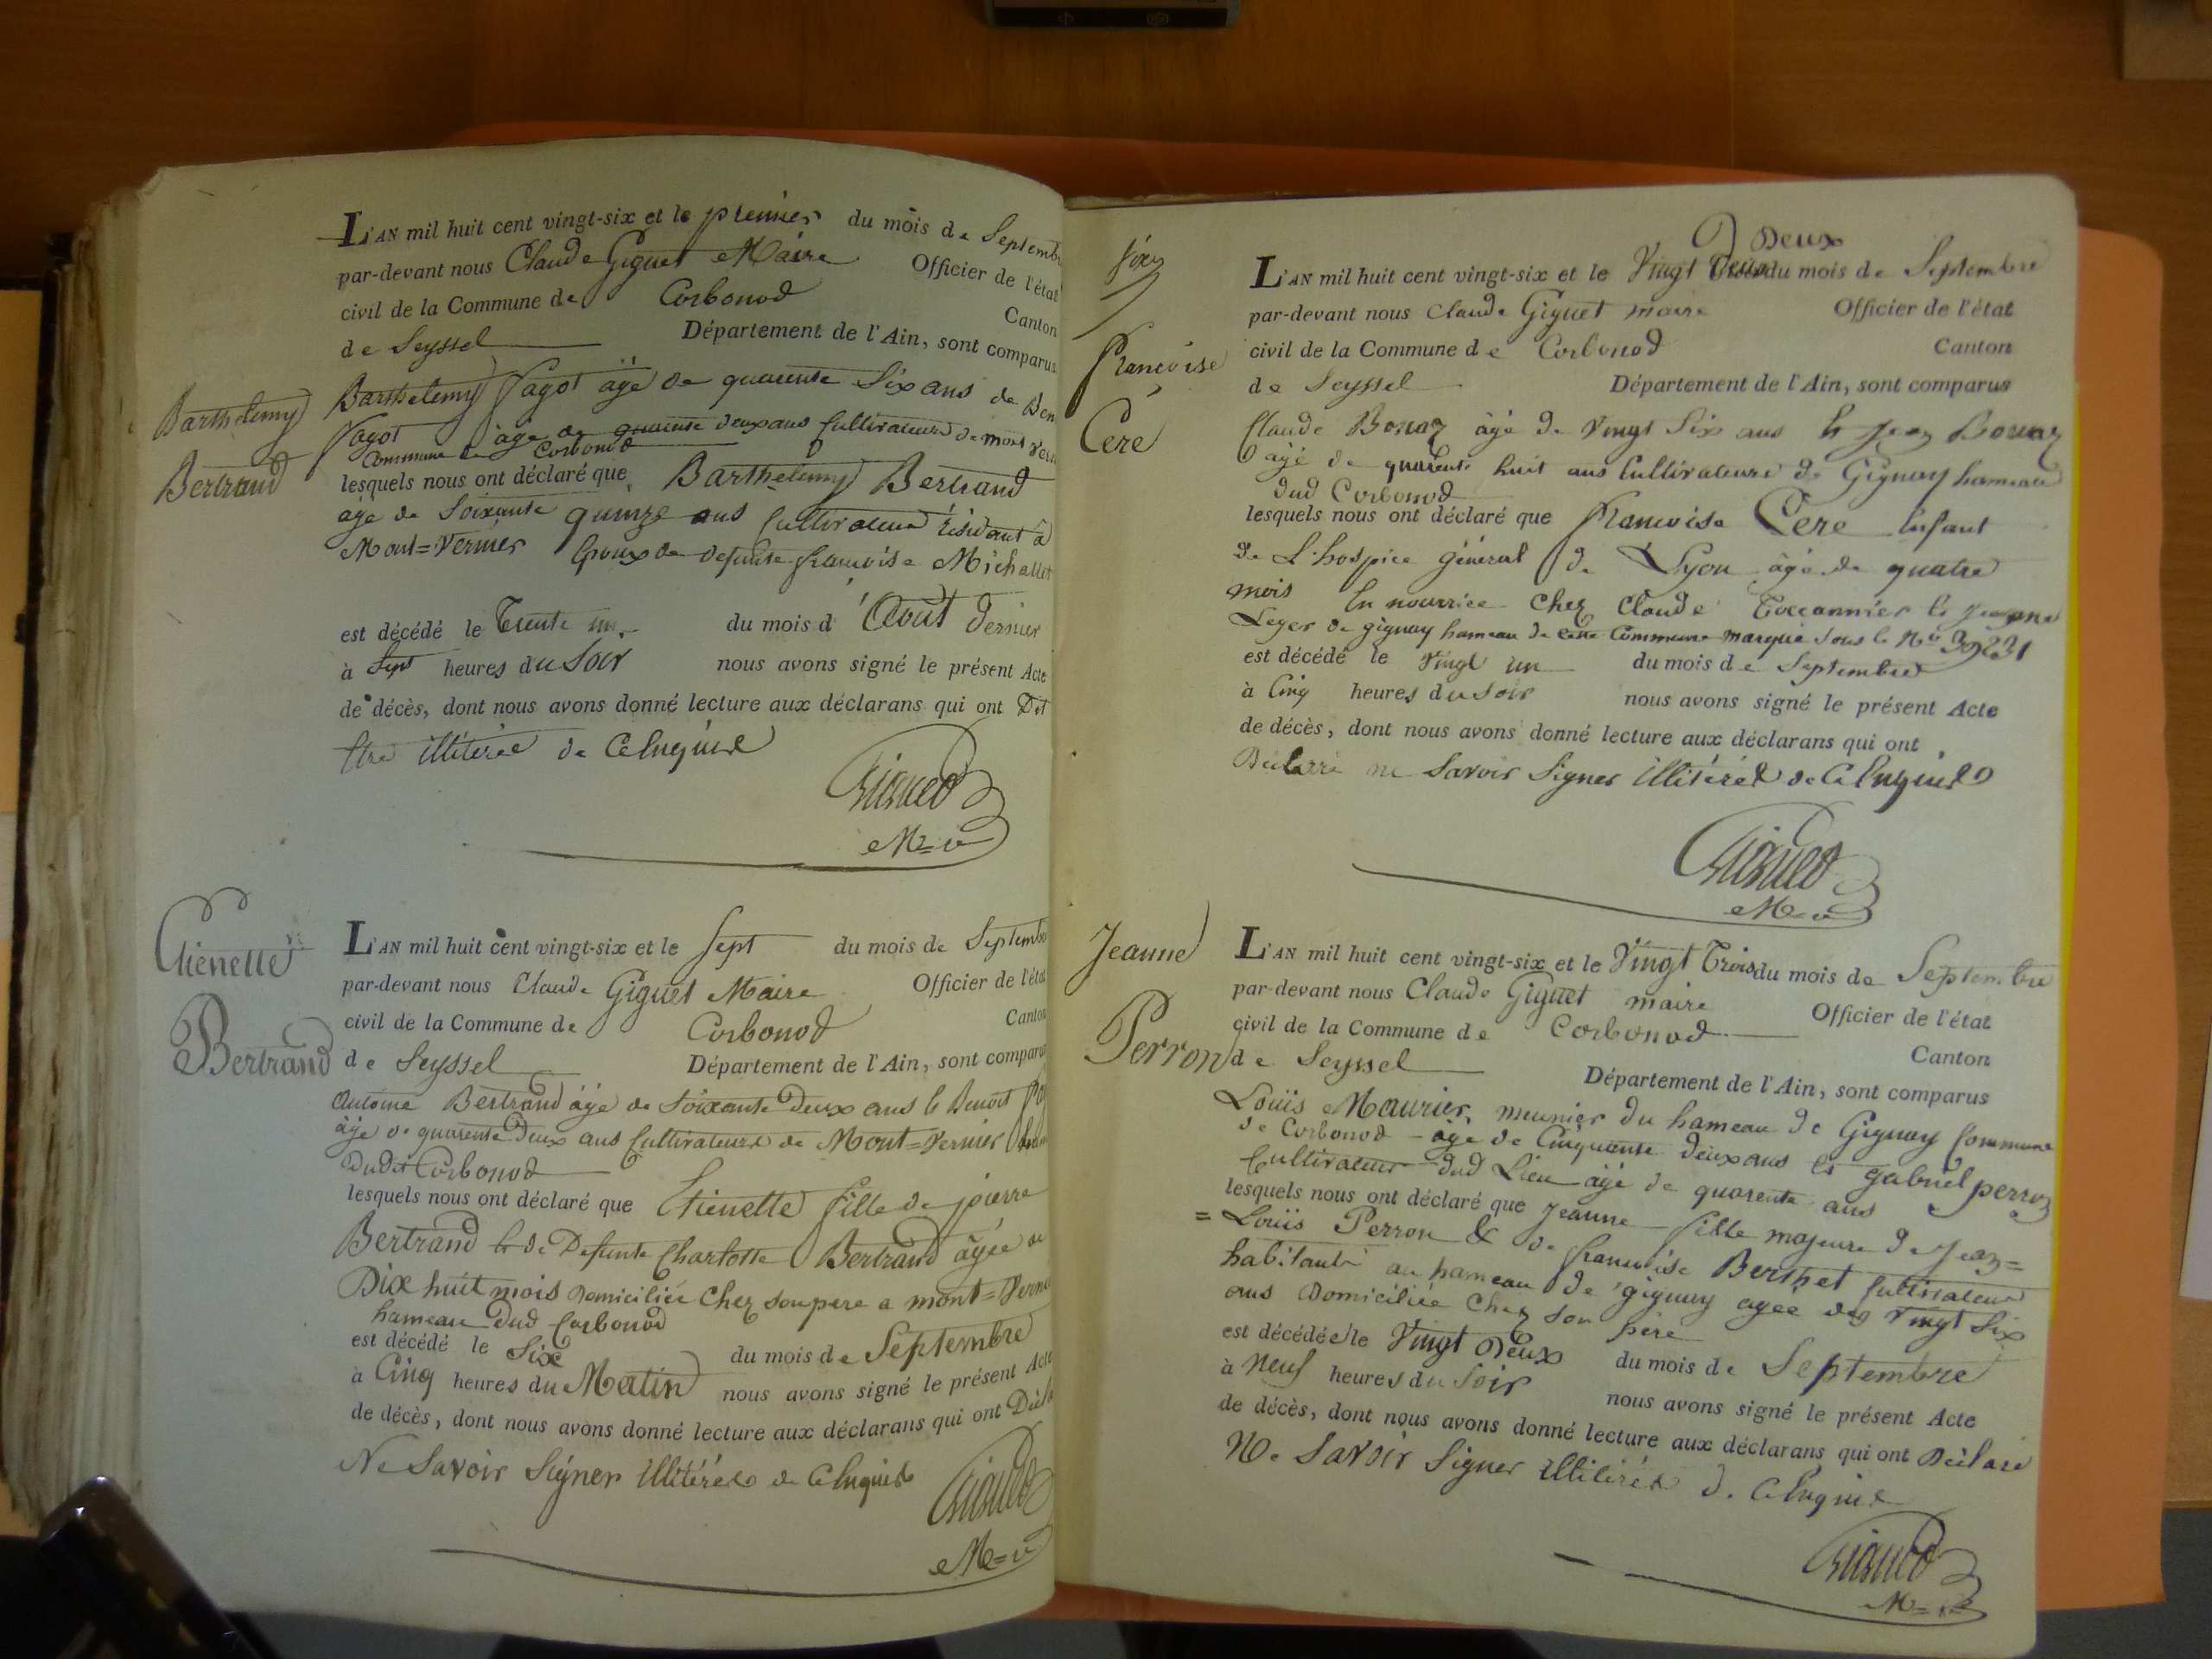 L'AN mil huit cent vingt-six et le premier du mois de Septemb
par-devant nous Claude Giguet Maire Officier de l'état
civil de la Commune de Corbonod Canton
de Seyssel Département de l'Ain, sont comparus
Barthelemy
Bertrand
Barthelemy fagot âgé de quarente Six ans de Ben
fagot âgé de quarente deux ans Cultivateurs de mont
Commune de Corbonod
lesquels nous ont déclaré que Barthelemy Bertrand
âgé de Soixante quinze ans Cultivateur résidant à
Mont=Vernier Epoux de defunte françoise Michallet
est décédé le Trente un du mois d'Août dernier
à Sept heures du Soir nous avons signé le présent Acte
de décès, dont nous avons donné lecture aux déclarans qui ont Dit
Etre illitéré de Ce Enquis
Giguet
M=re
Etienette
Bertrand
L'AN mil huit cent vingt-six et le Sept du mois de Septemb
par-devant nous Claude Giguet Maire Officier de l'état
civil de la Commune de Corbonod Canton
de Seyssel Département de l'Ain, sont comparus
Antoine Bertrand âgé de Soixante Deux ans & Benoit
âgé de quarente Deux ans Cultivateurs de Mont=Vernier
Dudit Corbonod
lesquels nous ont déclaré que Etienette fille de pierre
Bertrand & de Defunte Charlotte Bertrand âgée de
Dix huit mois Domiciliée Chez son pere a mont=Vernie
hameau Dud Corbonod
est décédé le Six du mois de Septembre
à Cinq heures du Matin nous avons signé le présent Acte
de décès, dont nous avons donné lecture aux déclarans qui ont Décla
Ne Savoir Signer illitéré de Ce Enquis
Giguet
M=re
Françoise
Cere
Deux
L'AN mil huit cent vingt-six et le Vingt Deux du mois de Septembre
par-devant nous Claude Giguet maire Officier de l'état
civil de la Commune de Corbonod Canton
de Seyssel Département de l'Ain, sont comparus
Claude Bonaz âgé de Vingt Six ans & Jean Bonaz
âgé de quarente huit ans Cultivateurs de Gignay hameau
dud Corbonod
lesquels nous ont déclaré que françoise Cere Enfant
de L'hospice général de Lyon âgé de quatre
mois En nourrice Chez Claude Toccannier & Jeanne
Leger de gignay hameau de cette Commune marqué Sous le No 39231
est décédé le Vingt un du mois de Septembre
à Cinq heures du Soir nous avons signé le présent Acte
de décès, dont nous avons donné lecture aux déclarans qui ont
Déclaré ne Savoir Signer illitéré de Ce Enquis
Giguet
M=re
Jeanne
Perron
L'AN mil huit cent vingt-six et le Vingt Trois du mois de Septembre
par-devant nous Claude Giguet maire Officier de l'état
civil de la Commune de Corbonod Canton
de Seyssel Département de l'Ain, sont comparus
Louis Maurier, meunier du hameau de Gignay Commune
de Corbonod âgé de Cinquante deux ans & gabriel perron
Cultivateur dud Lieu âgé de quarente ans
lesquels nous ont déclaré que Jeanne fille majeure de Jean=
=Louis Perron & de françoise Berthet Cultivateurs
habitants au hameau de gignay agée de Vingt Six
ans Domiciliée Chez son père
est décédée le Vingt Deux du mois de Septembre
à Neuf heures du Soir nous avons signé le présent Acte
de décès, dont nous avons donné lecture aux déclarans qui ont Déclaré
Ne Savoir Signer illitéré de Ce Enquis
Giguet
M=re